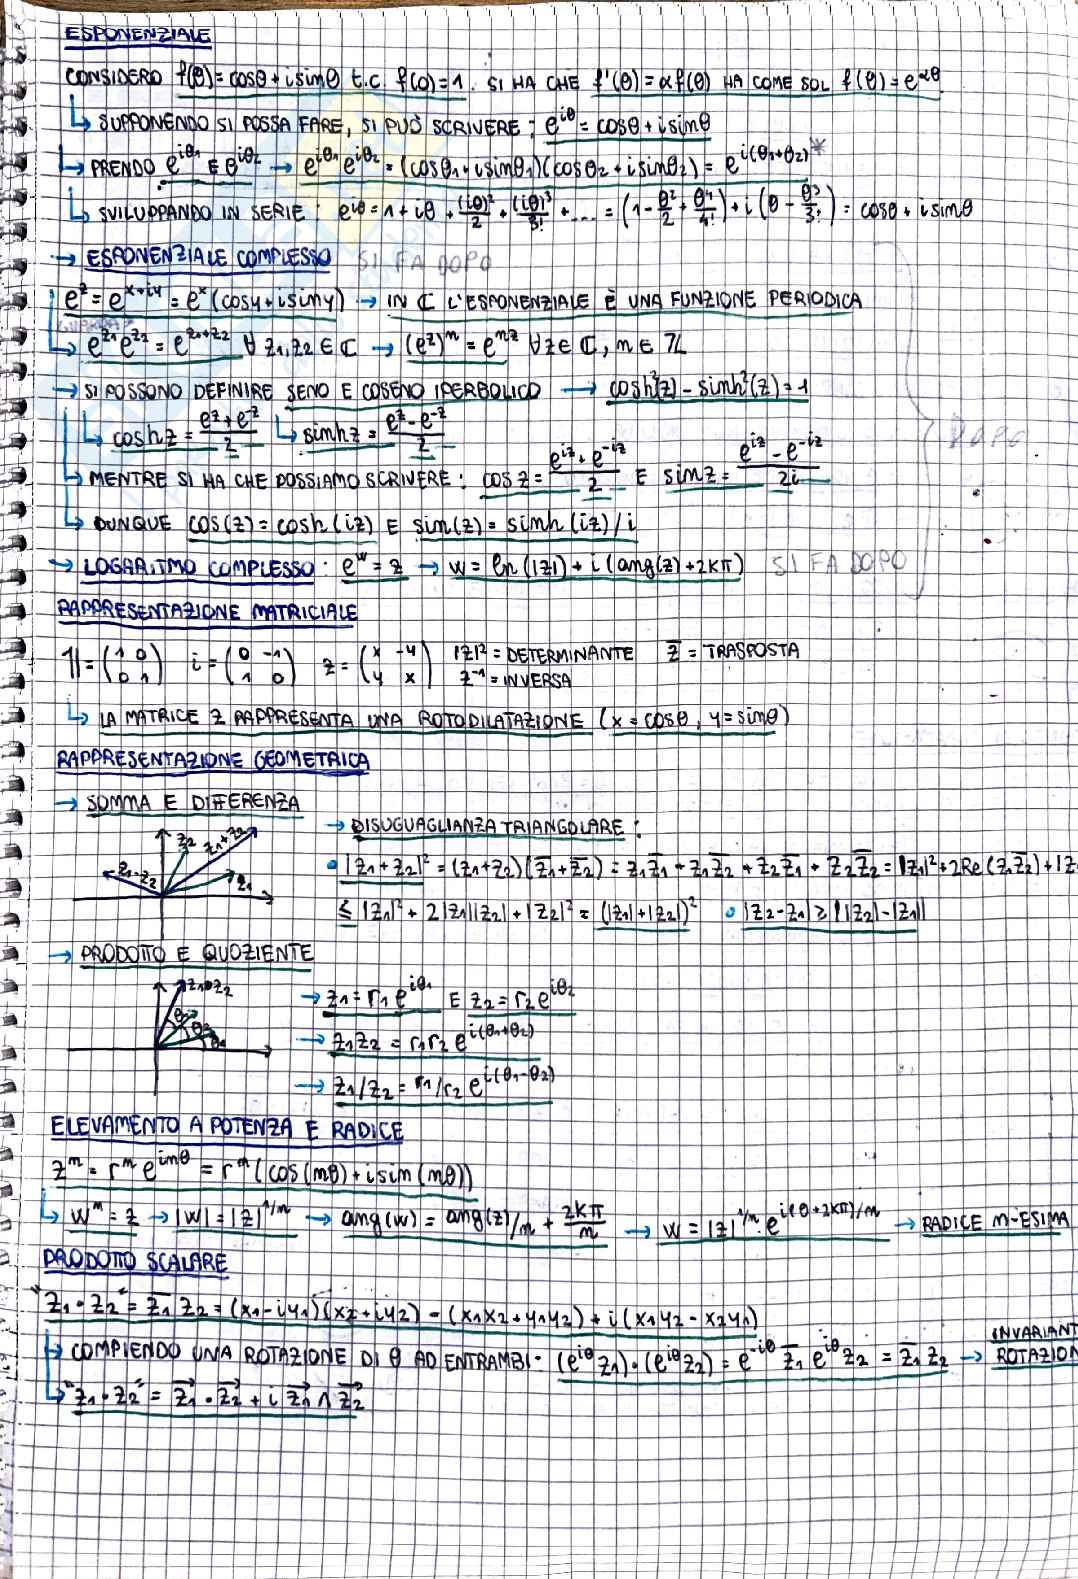 ESPONENZIALE
CONSIDERO f(θ)=cosθ+isinθ t.c f(0)=1. SI HA CHE f'(θ)=αf(θ) HA COME SOL f(θ)=e^αθ
↳ SUPPONENDO SI POSSA FARE, SI PUÒ SCRIVERE: e^iθ=cosθ+isinθ
↳ PRENDO e^iθ1 E e^iθ2 → e^iθ1 e^iθ2=(cosθ1+isinθ1)(cosθ2+isinθ2)=e^i(θ1+θ2)*
↳ SVILUPPANDO IN SERIE: e^iθ=1+iθ+(iθ)²/2+(iθ)³/3!+....=(1-θ²/2+θ⁴/4!)+i(θ-θ³/3!)=cosθ+isinθ
→ ESPONENZIALE COMPLESSO SI FA DOPO
e^z=e^x+iy=e^x(cosy+isiny) → IN ℂ L'ESPONENZIALE È UNA FUNZIONE PERIODICA
↳ e^z1 e^z2=e^z1+z2 ∀ z1,z2 ∈ ℂ → (e^z)^n=e^nz ∀z∈ℂ, n∈ℤ
→ SI POSSONO DEFINIRE SENO E COSENO IPERBOLICO → cosh²(z)-sinh²(z)=1
↳ coshz=(e^z+e^-z)/2 ↳ sinhz=(e^z-e^-z)/2 DOPO
↳ MENTRE SI HA CHE POSSIAMO SCRIVERE: cosz=(e^iz+e^-iz)/2 E sinz=(e^iz-e^-iz)/2i
↳ DUNQUE cos(z)=cosh(iz) E sin(z)=sinh(iz)/i
→ LOGARITMO COMPLESSO: e^w=z → w=ln(|z|)+i(arg(z)+2kπ) SI FA DOPO
RAPPRESENTAZIONE MATRICIALE
𝟙=(1 0 / 0 1) i=(0 -1 / 1 0) z=(x -y / y x) |z|²=DETERMINANTE z̄=TRASPOSTA
z⁻¹=INVERSA
↳ LA MATRICE Z RAPPRESENTA UNA ROTODILATAZIONE (x=cosθ, y=sinθ)
RAPPRESENTAZIONE GEOMETRICA
→ SOMMA E DIFFERENZA
z1-z2 z2 z1+z2 z1
→ DISUGUAGLIANZA TRIANGOLARE:
• |z1+z2|²=(z1+z2)(z̄1+z̄2)=z1z̄1+z1z̄2+z2z̄1+z2z̄2=|z1|²+2Re(z1z̄2)+|z
≤|z1|²+2|z1||z2|+|z2|²=(|z1|+|z2|)² • |z2-z1|≥||z2|-|z1||
→ PRODOTTO E QUOZIENTE
z1·z2
→ z1=r1e^iθ1 E z2=r2e^iθ2
→ z1z2=r1r2e^i(θ1+θ2)
→ z1/z2=r1/r2e^i(θ1-θ2)
ELEVAMENTO A POTENZA E RADICE
z^n=r^n e^inθ=r^n(cos(nθ)+isin(nθ))
↳ w^n=z → |w|=|z|^1/n → arg(w)=arg(z)/n+2kπ/n → w=|z|^1/n·e^i(θ+2kπ)/n → RADICE N-ESIMA
PRODOTTO SCALARE
"z1·z2"=z̄1z2=(x1-iy1)(x2+iy2)=(x1x2+y1y2)+i(x1y2-x2y1)
↳ COMPIENDO UNA ROTAZIONE DI θ AD ENTRAMBI: (e^iθz1)·(e^iθz2)=e^-iθ z̄1 e^iθ z2=z̄1z2 → INVARIANT
ROTAZION
↳ "z1·z2"=z⃗1·z⃗2+i z⃗1∧z⃗2